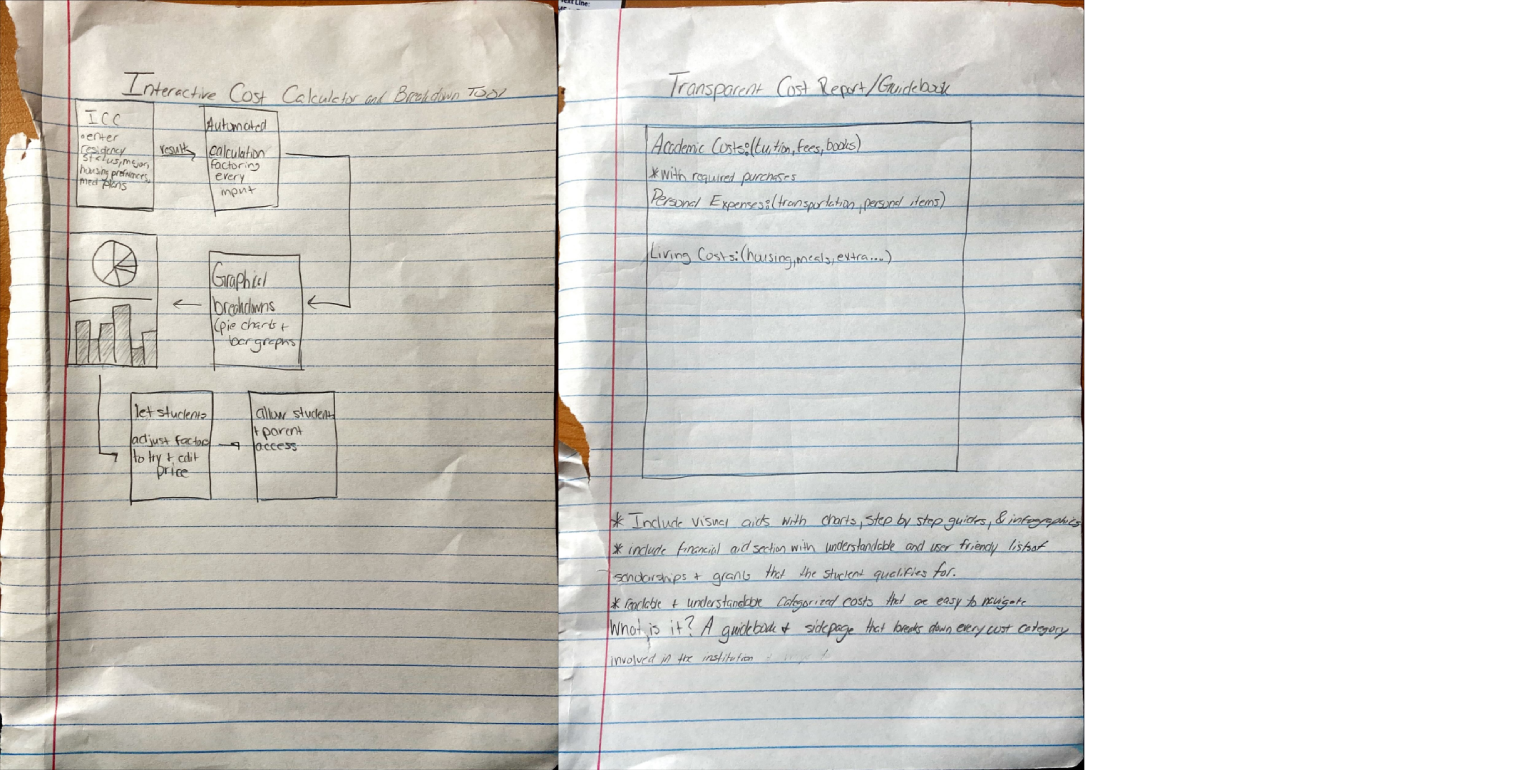 Text Line:
Interactive Cost Calculator and Breakdown Tool
ICC
•enter
residency
status, major,
housing preferences,
meal plans
results
Automated
calculation
factoring
every
input
Graphical
breakdowns
(pie charts +
bar graphs
let students
adjust factor
to try + edit
price
allow student
+ parent
access
Transparent Cost Report/Guidebook
Academic Costs:(tuition, fees, books)
*with required purchases
Personal Expenses:(transportation, personal items)
Living Costs:(housing, meals, extra....)
* Include visual aids with charts, step by step guides, & infographics
* include financial aid section with understandable and user friendly lists of
scholarships + grants that the student qualifies for.
* readable + understandable categorized costs that are easy to navigate
What is it? A guidebook + sidepage that breaks down every cost category
involved in the institution